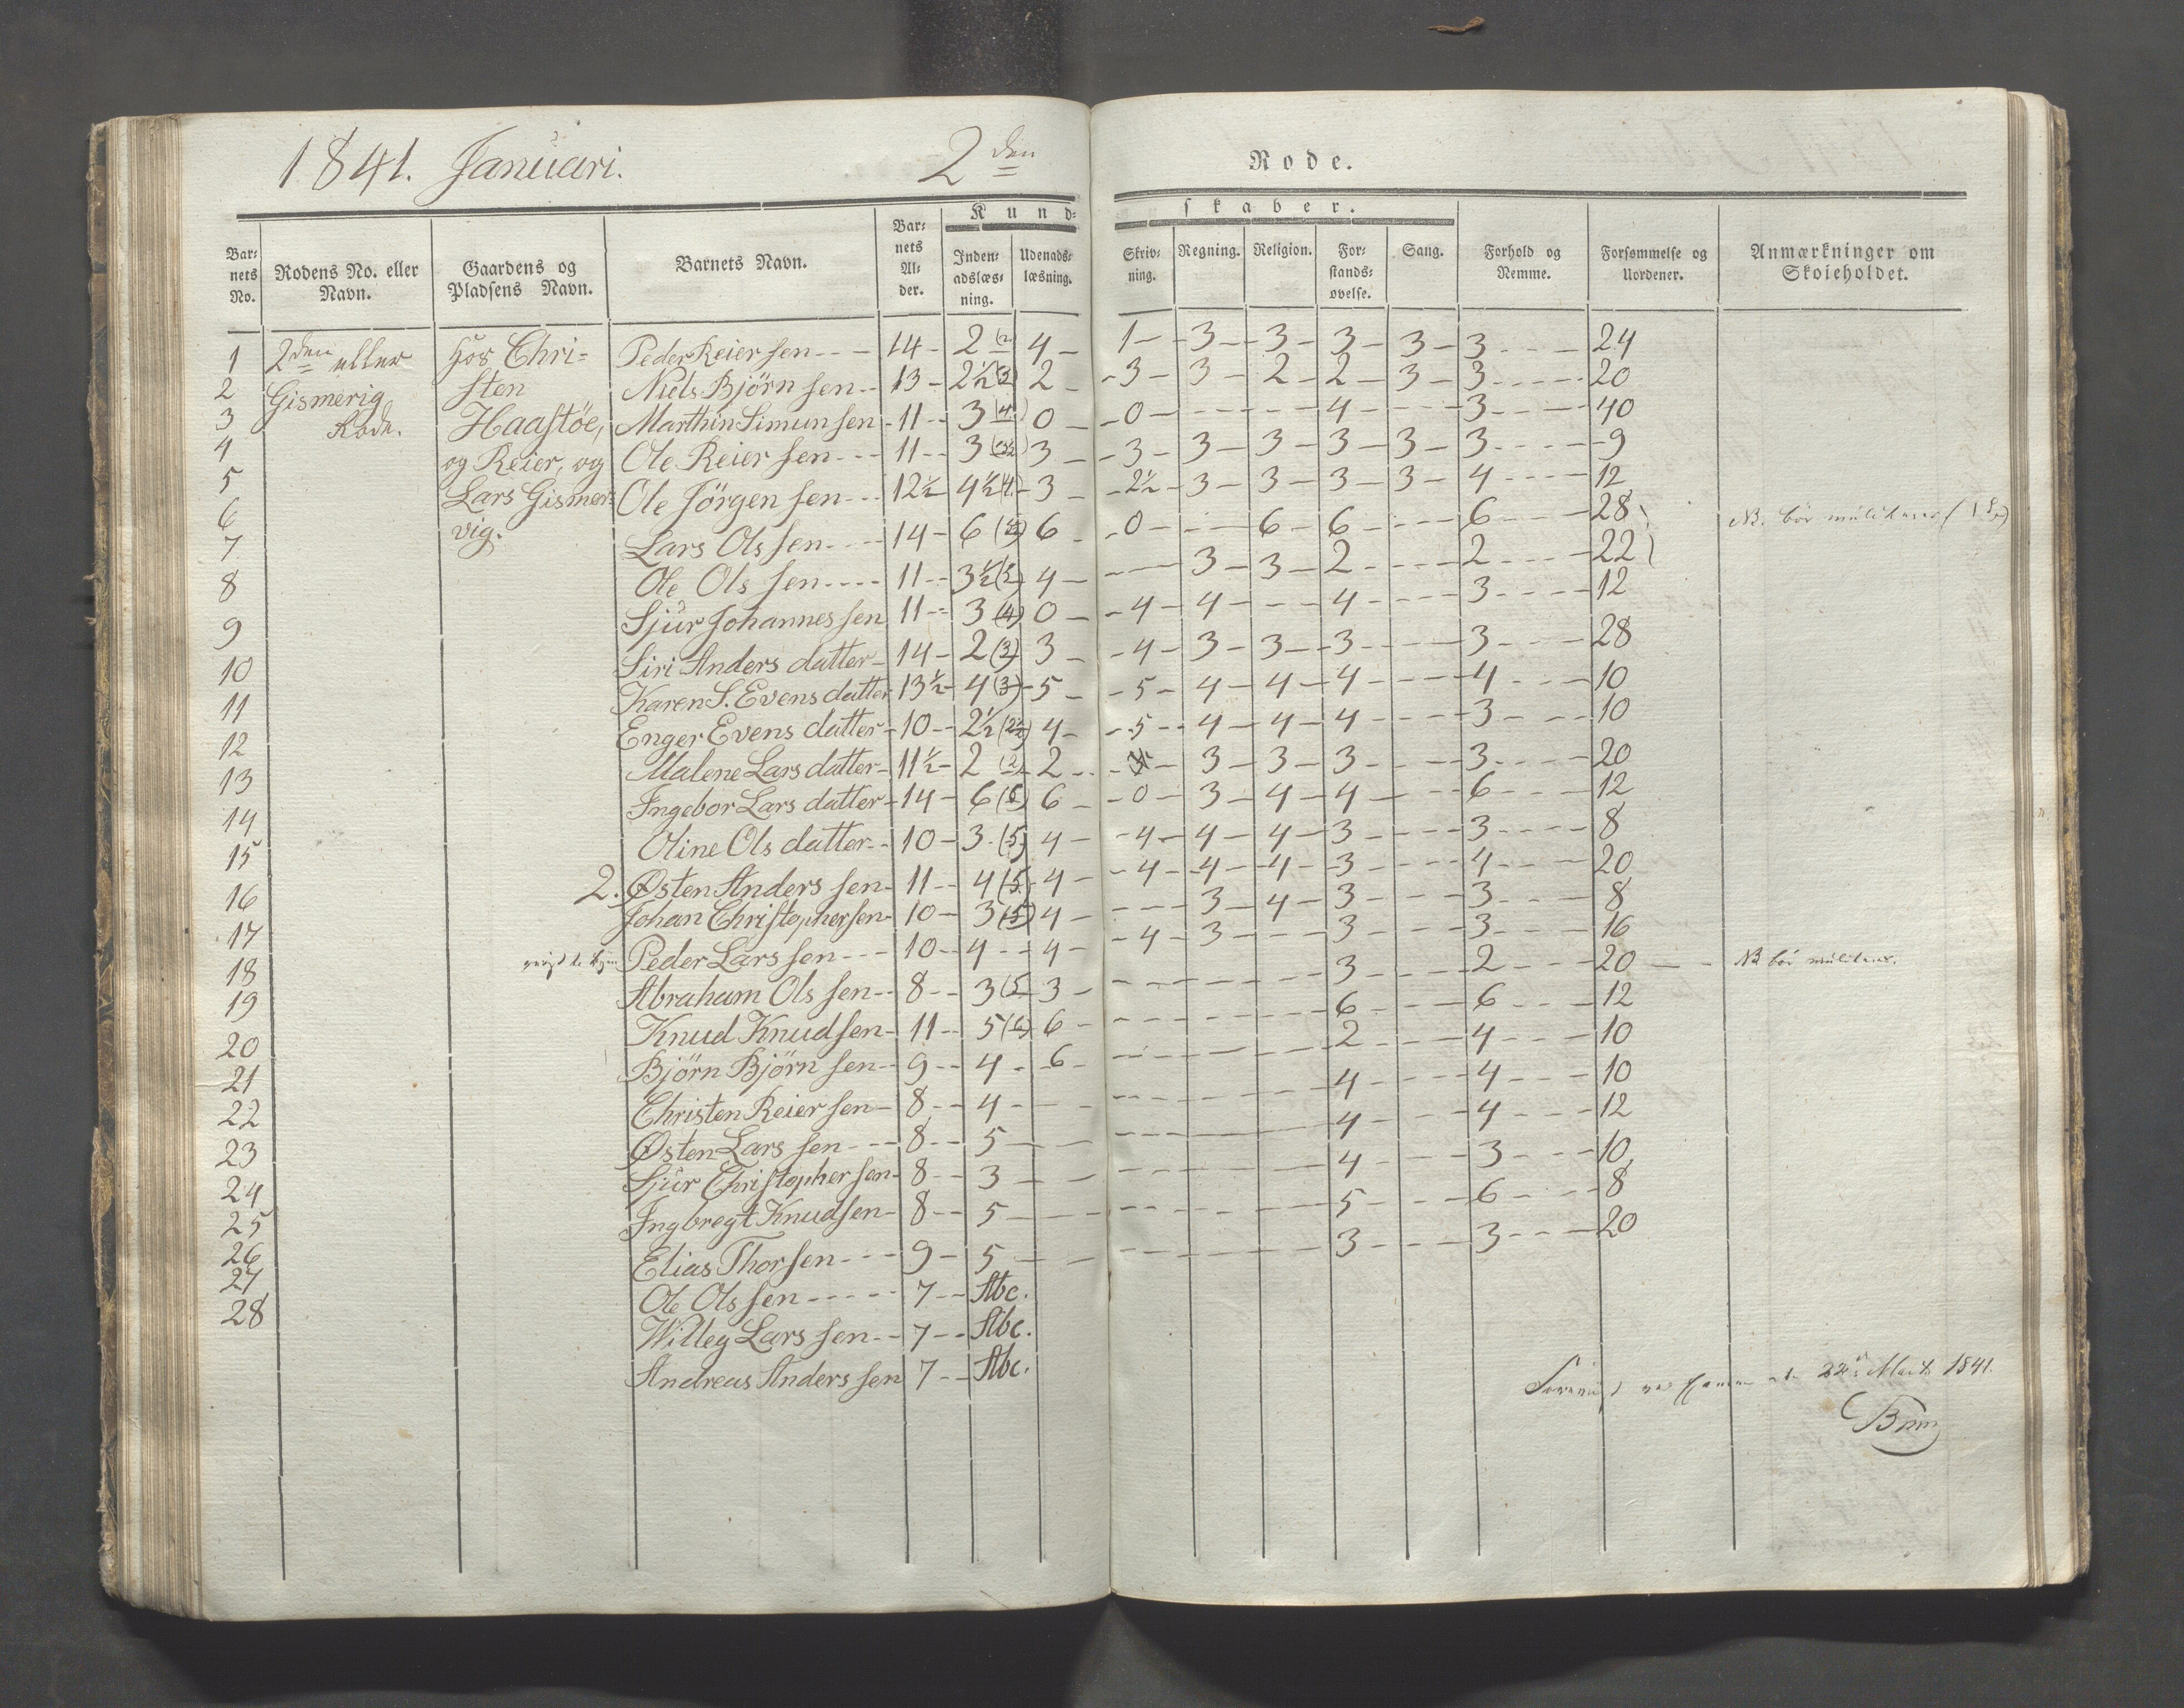 1841. Januari. 2den Rode.
Kund- skaber.
Bar- nets No. | Rodens No. eller Navn. | Gaardens og Pladsens Navn. | Barnets Navn. | Bar- nets Al- der. | Inden- adslæs- ning. | Udenads- læsning. | Skriv- ning. | Regning. | Religion. | For- stands- øvelse. | Sang. | Forhold og Nemme. | Forsømmelse og Uordener. | Anmærkninger om Skoleholdet.
1 2den eller hos Chri= Peder Reiersen 14 2 (2 4 1 3 3 3 3 3 24
2 Gismerig sten Niels Björnsen 13 2½ (3) 2 3 3 2 2 3 3 20
3 Rode. Haaftöe, Marthin Simunsen 11 3 (4) 0 0 4 3 40
4 og Reier, og Ole Reiersen 11 3 3 3 3 3 3 3 3 9
5 Lars Gismer= Ole Jörgensen 12½ 4½ (4) 3 2½ 3 3 3 3 4 12
6 vig. Lars Olssen 14 6 6 0 6 6 6 28 NB. bör
7 Ole Olssen 11 3½ 4 3 3 2 2 22
8 Sjur Johannessen 11 3 (4) 0 4 4 4 3 12
9 Siri Andersdatter 14 2 (3) 3 4 3 3 3 3 28
10 Karen S. Evensdatter 13½ 4 (3) 5 5 4 4 4 4 10
11 Enger Evensdatter 10 2½ (2½) 4 5 4 4 4 3 10
12 Malene Larsdatter 11½ 2 (2) 2 3 3 3 3 20
13 Ingebor Larsdatter 14 6 6 0 3 4 4 6 12
14 Oline Olsdatter 10 3 (5) 4 4 4 4 3 3 8
15 2. Østen Anderssen 11 4 (5 4 4 4 4 3 4 20
16 Johan Christophersen 10 3 (5) 4 3 4 3 3 8
17 Peder Larssen 10 4 4 4 3 3 3 16
18 Abraham Olssen 8 3 (5 3 3 2 20 NB bör
19 Knud Knudsen 11 5 (6) 6 6 6 12
20 Björn Björnsen 9 4 6 2 4 10
21 Christen Reiersen 8 4 4 4 10
22 Østen Larssen 8 5 4 4 12
23 Sjur Christophersen 8 3 4 3 10
24 Ingbregt Knudsen 8 5 5 6 8
25 Elias Thorsen 9 5 3 3 20
26 Ole Olssen 7 Abc.
27 Willey Larssen 7 Abc.
28 Andreas Anderssen 7 Abc.
22 Marts 1841.